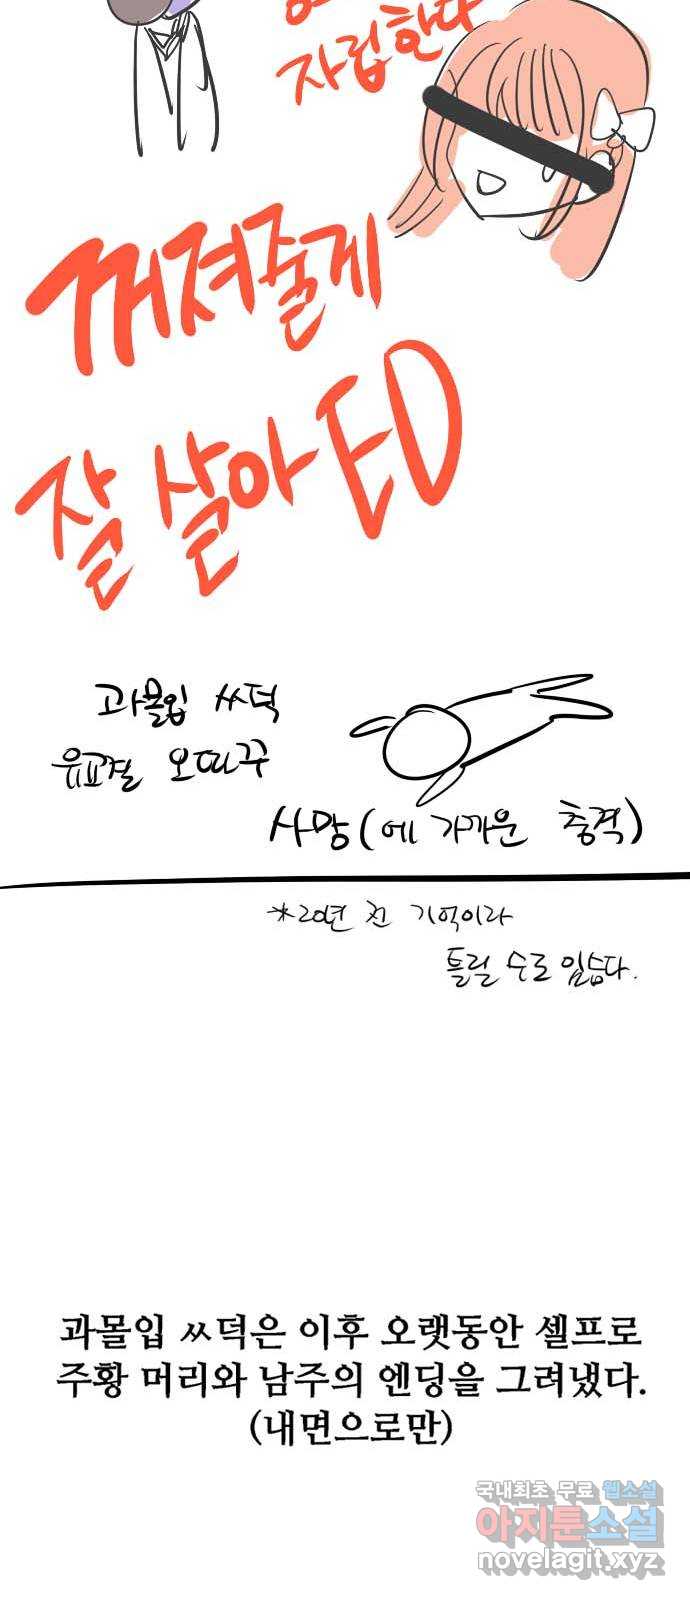 자립한다
꺼져줄게
잘 살아 ED
과몰입 ㅆ덕
유교걸 오따꾸
사망(에 가까운 충격)
*20년 전 기억이라
틀릴 수도 있습다.
과몰입 ㅆ덕은 이후 오랫동안 셀프로
주황 머리와 남주의 엔딩을 그려냈다.
(내면으로만)
국내최초 무료 웹소설
아지툰소설
novelagit.xyz